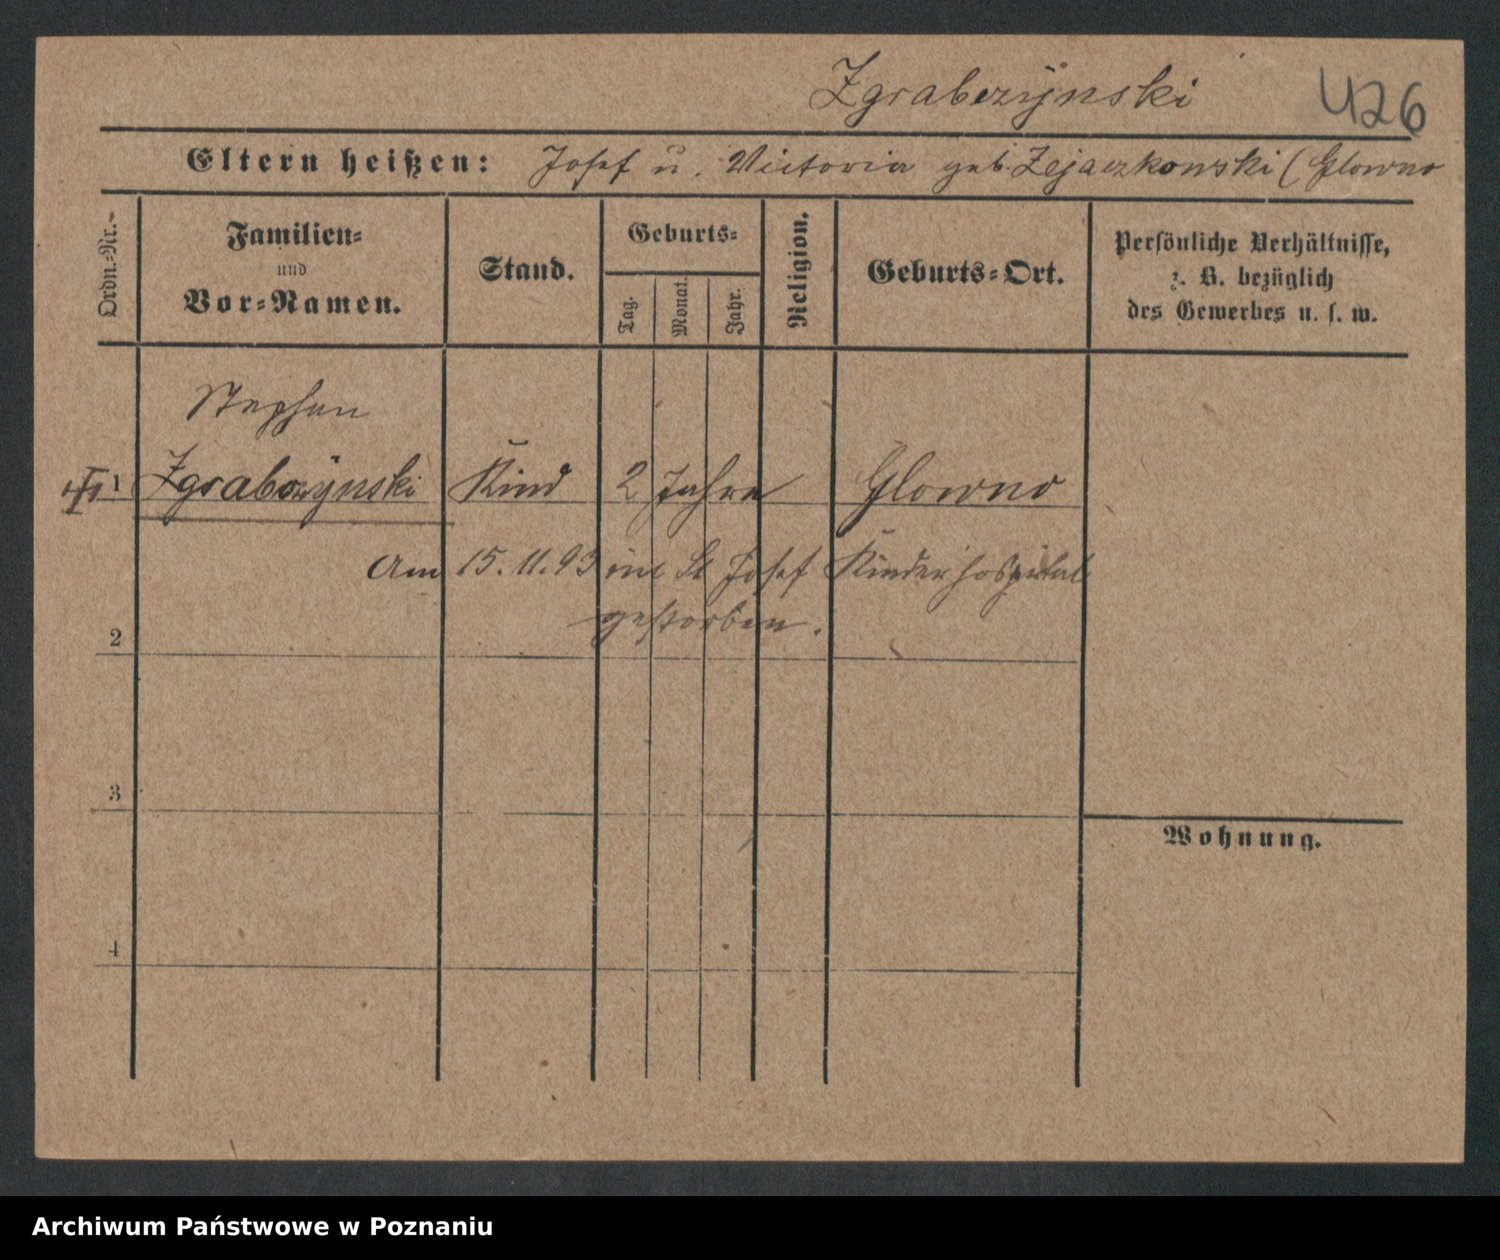 Zgrabczynski 426
Eltern heißen: Josef u. Victoria geb. Zejaczkowski (Glowno
Ordn.-Nr.
Familien-
und
Vor-Namen.
Stand.
Geburts-
Tag.
Monat.
Jahr.
Religion.
Geburts-Ort.
Persönliche Verhältnisse,
z. B. bezüglich
des Gewerbes u. s. w.
Stephan
1 Zgrabczynski Kind 2 Jahre Glowno
Am 15.11.93 im St Josef Kinderhospital
gestorben.
2
3
Wohnung.
4
Archiwum Państwowe w Poznaniu